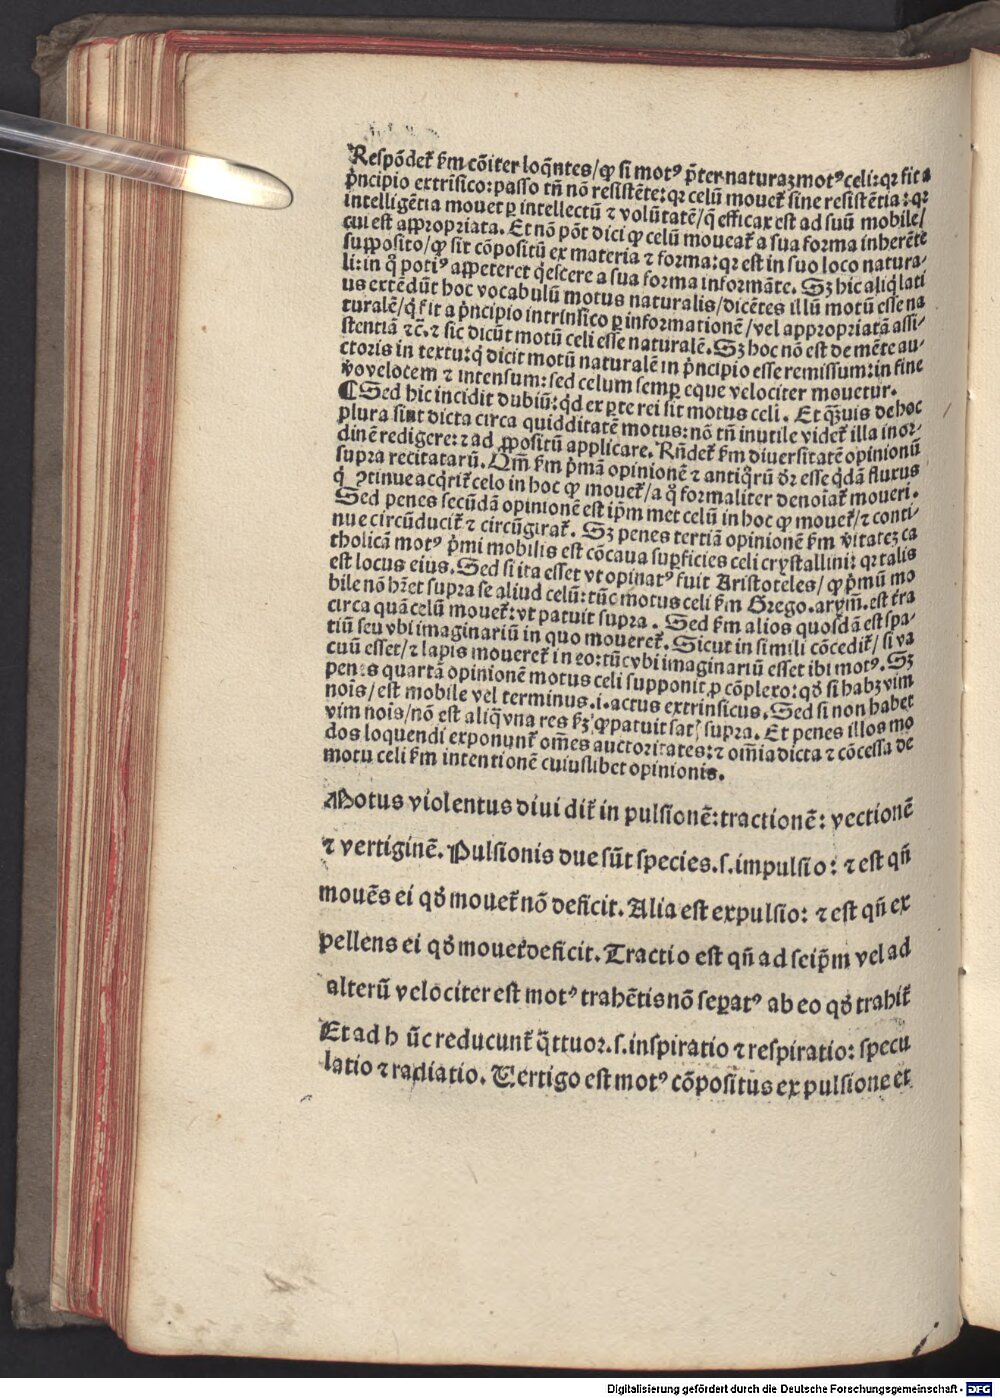 Respõdet᷑ ẜm cõiter loq̃ntes/ꝙ si mot⁹ p̃ter naturaꝫ mot⁹ celi: qꝛ fit a
pͥncipio extrĩsico: passo tñ nõ resistẽte: qꝛ celũ mouet᷑ sine resistẽtia: qꝛ
intelligẽtia mouet ꝑ intellectũ ⁊ volũtatẽ/q̃ efficax est ad suũ mobile/
cui est aꝓpropriata. Et nõ põt dici ꝙ celũ moueat᷑ a sua forma inherẽte
supposito/ꝙ sit cõpositũ ex materia ⁊ forma: qꝛ est in suo loco natura-
li: in q̊ poti⁹ appeteret qͥescere a sua forma informãte. Sꝫ hic aliqͥ lati
us extẽdũt hoc vocabulũ motus naturalis/dicẽtes illũ motũ esse na
turalẽ/qͥ fit a pͥncipio intrinsico ꝑ informationẽ/vel appropriatã assi-
stentiã ⁊c̃. ⁊ sic dicũt motũ celi esse naturalẽ. Sꝫ hoc nõ est de mẽte au-
ctoris in textu: qͥ dicit motũ naturalẽ in pͥncipio esse remissum: in fine
v̊o velocem ⁊ intensum: sed celum semꝑ eque velociter mouetur.
¶ Sed hic incidit dubiũ: qͥd ex ꝑte rei sit motus celi. Et q̃ꝫuis de hoc
plura sint dicta circa quidditatẽ motus: nõ tñ inutile videt᷑ illa in or-
dinẽ redigere: ⁊ ad ꝓpositũ applicare. Rñdet᷑ ẜm diuersitatẽ opinionũ
supra recitatarũ. Qm̃ ẜm pͥmã opinionẽ ⁊ antiq̃rũ dꝛ esse qͥdã fluxus
qͥ ꝯtinue acqͥrit᷑ celo in hoc ꝙ mouet᷑/a q̊ formaliter denoiat᷑ moueri.
Sed penes secũdã opinionẽ est ip̃m met celũ in hoc ꝙ mouet᷑/⁊ conti-
nue circũducit᷑ ⁊ circũgirat᷑. Sꝫ penes tertiã opinionẽ ẜm v̓itateꝫ ca
tholicã mot⁹ pͥmi mobilis est cõcaua suꝑficies celi crystallini: qꝛ talis
est locus eius. Sed si ita esset vt opinat⁹ fuit Aristoteles/ꝙ pͥmũ mo
bile nõ hr̃et supra se aliud celũ: tũc motus celi ẜm Grego. arym̃. est t̃ra
circa quã celũ mouet᷑: vt patuit supra. Sed ẜm alios quosdã est spa-
tiũ seu vbi imaginariũ in quo moueret᷑. Sicut in simili cõcedit᷑/si va
cuũ esset/⁊ lapis moueret᷑ in eo: tũc vbi imaginariũ esset ibi mot⁹. Sꝫ
penes quartã opinionẽ motus celi supponit ꝓ cõplexo: qđ si habꝫ vim
nois/est mobile vel terminus .i. actus extrinsicus. Sed si non habet
vim nois/nõ est aliq̃ vna res ẜꝫ ꝙ patuit sat⁊ supra. Et penes illos mo
dos loquendi exponunt᷑ om̃es auctoritates: ⁊ om̃ia dicta ⁊ cõcessa de
motu celi ẜm intentionẽ cuiuslibet opinionis.
Motus violentus diuidit᷑ in pulsionẽ: tractionẽ: vectionẽ
⁊ vertiginẽ. Pulsionis due sũt species .s. impulsio: ⁊ est qñ
mouẽs ei qđ mouet᷑ nõ deficit. Alia est expulsio: ⁊ est qñ ex
pellens ei qđ mouet᷑ deficit. Tractio est qñ ad seip̃m vel ad
alterũ velociter est mot⁹ trahẽtis nõ seꝑat⁹ ab eo qđ trahit᷑
Et ad hũc reducunt᷑ q̃ttuor .s. inspiratio ⁊ respiratio: specu
latio ⁊ radiatio. Vertigo est mot⁹ cõpositus ex pulsione et
Digitalisierung gefördert durch die Deutsche Forschungsgemeinschaft - DFG